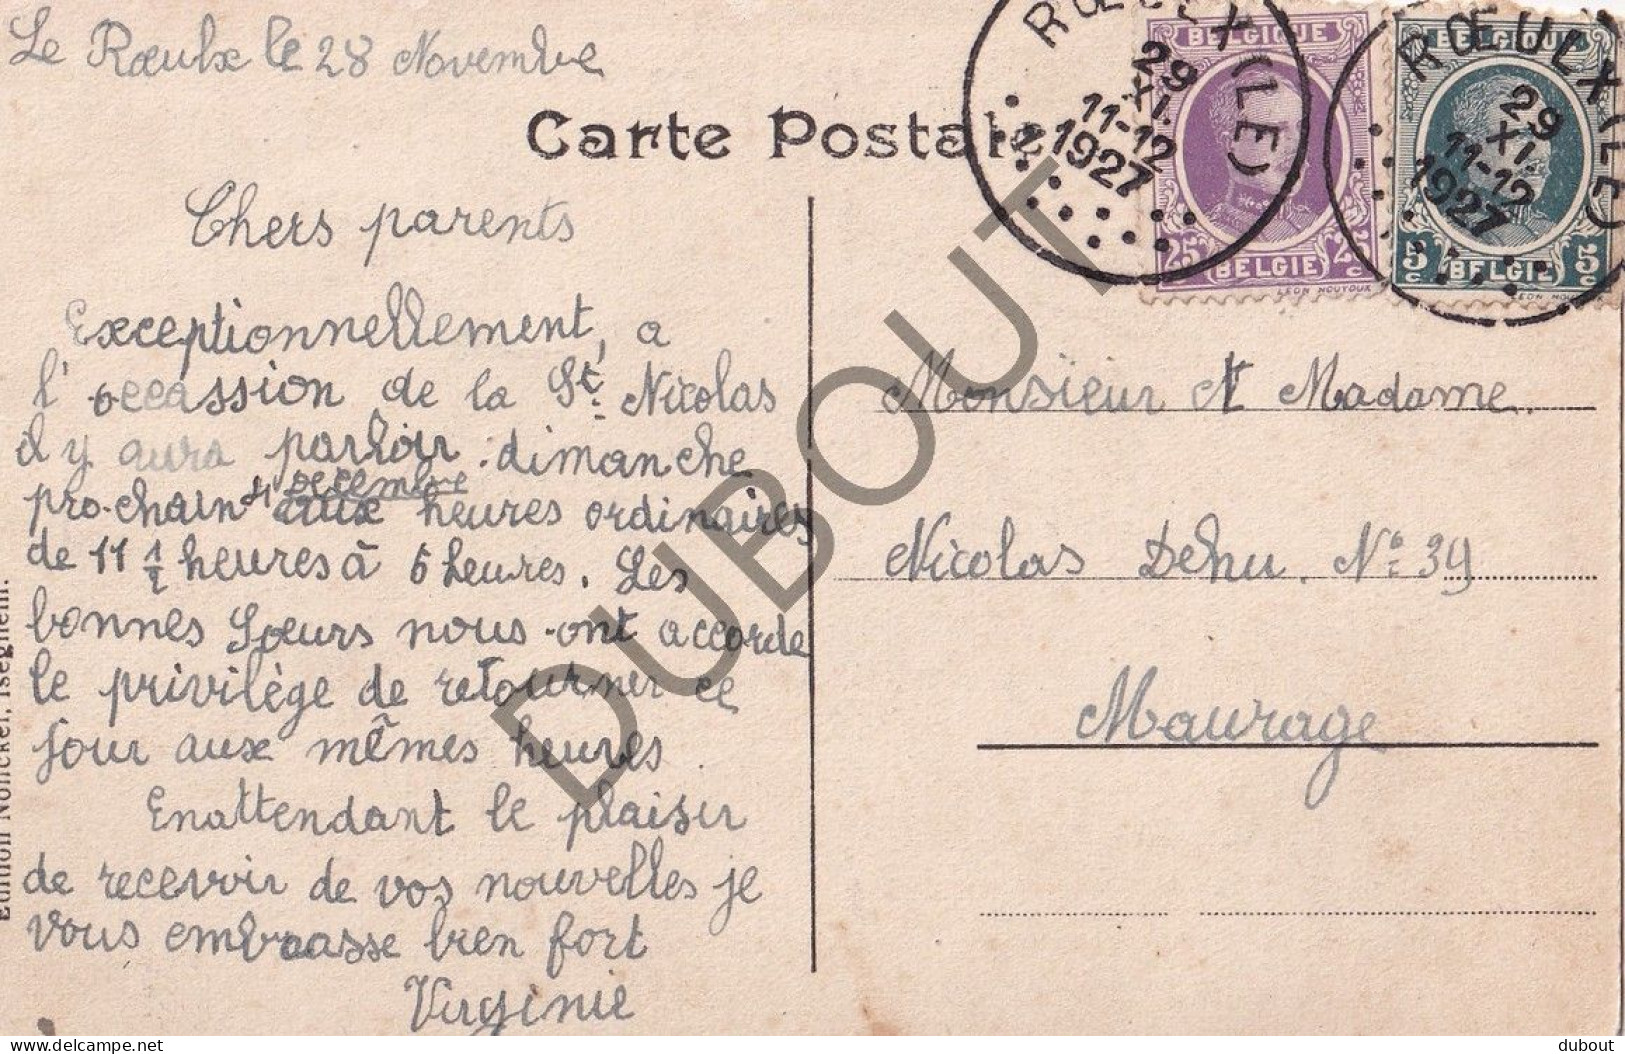 Le Rœulx le 28 Novembre
Carte Postale
Chers parents
Exceptionnellement, a
l'occassion de la St. Nicolas
il y aura parloir dimanche
prochain 4 decembre aux heures ordinaires
de 11 1/2 heures à 5 heures. Les
bonnes Sœurs nous ont accorde
le privilège de retourner ce
jour aux mêmes heures.
En attendant le plaisir
de recevoir de vos nouvelles je
vous embrasse bien fort
Virginie
Edition Nonckel, Iseghem.
RŒULX (LE)
29
XI.
11-12
1927
BELGIQUE
25 c BELGIE 25 c
LEON NOUYOUX
RŒULX (LE)
29
XI.
11-12
1927
BELGIQUE
5 c BELGIE 5 c
LEON NOUYOUX
Monsieur et Madame
Nicolas Dehu. No 39
Maurage
DUBOUT
dubout
delcampe.net